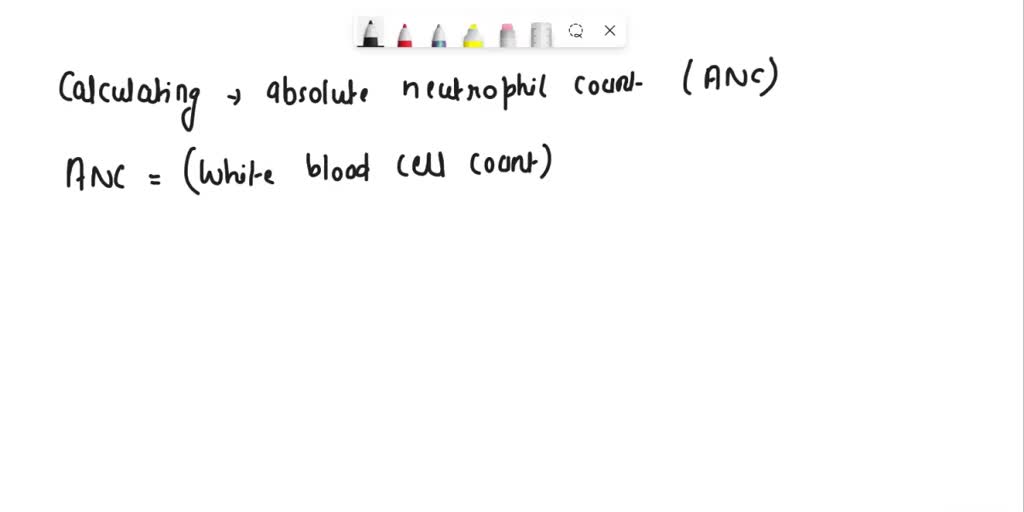 Calculating → absolute neutrophil count (ANC)
ANC = (White blood cell count)